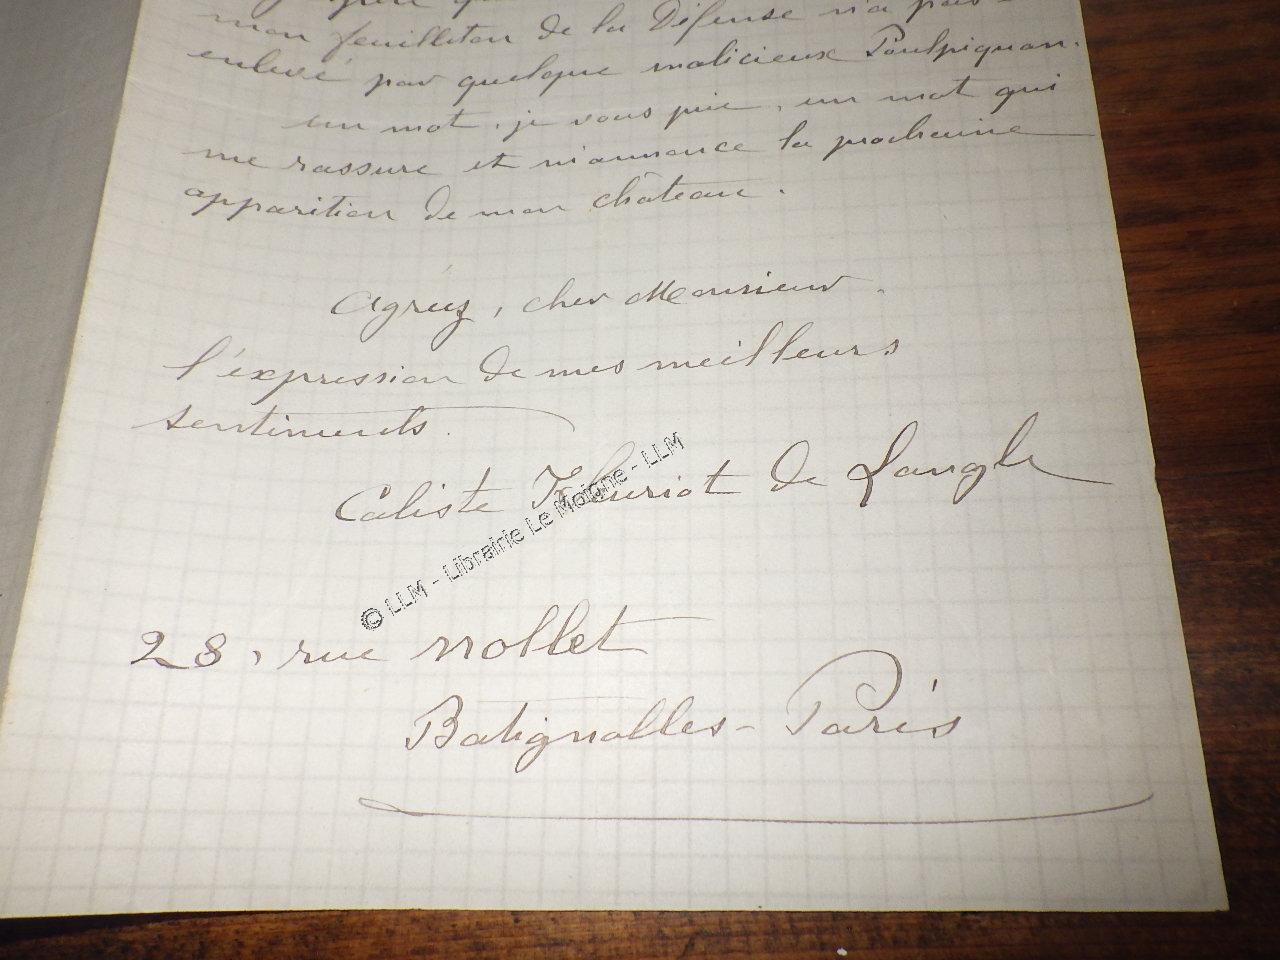 mon feuilleton de la Défense n'a pas
enlevé par quelque malicieux Poulpiquan.
un mot, je vous prie, un mot qui
me rassure et m'annonce la prochaine
apparition de mon château.
Agréez, cher Monsieur.
l'expression de mes meilleurs
sentiments.
Caliste Fleuriot de Langle
© LLM - Librairie Le Moigne - LLM
28, rue Nollet
Batignolles - Paris